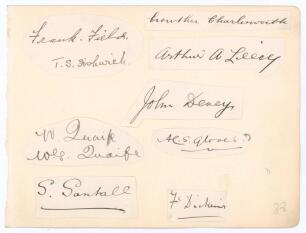 Crowther Charlesworth
Frank. Field.
T. S. Fishwick
Arthur A Lilley
John Devey
W Quaife
W. G. Quaife
A. C. S. Glover
S. Santall
F Dickens